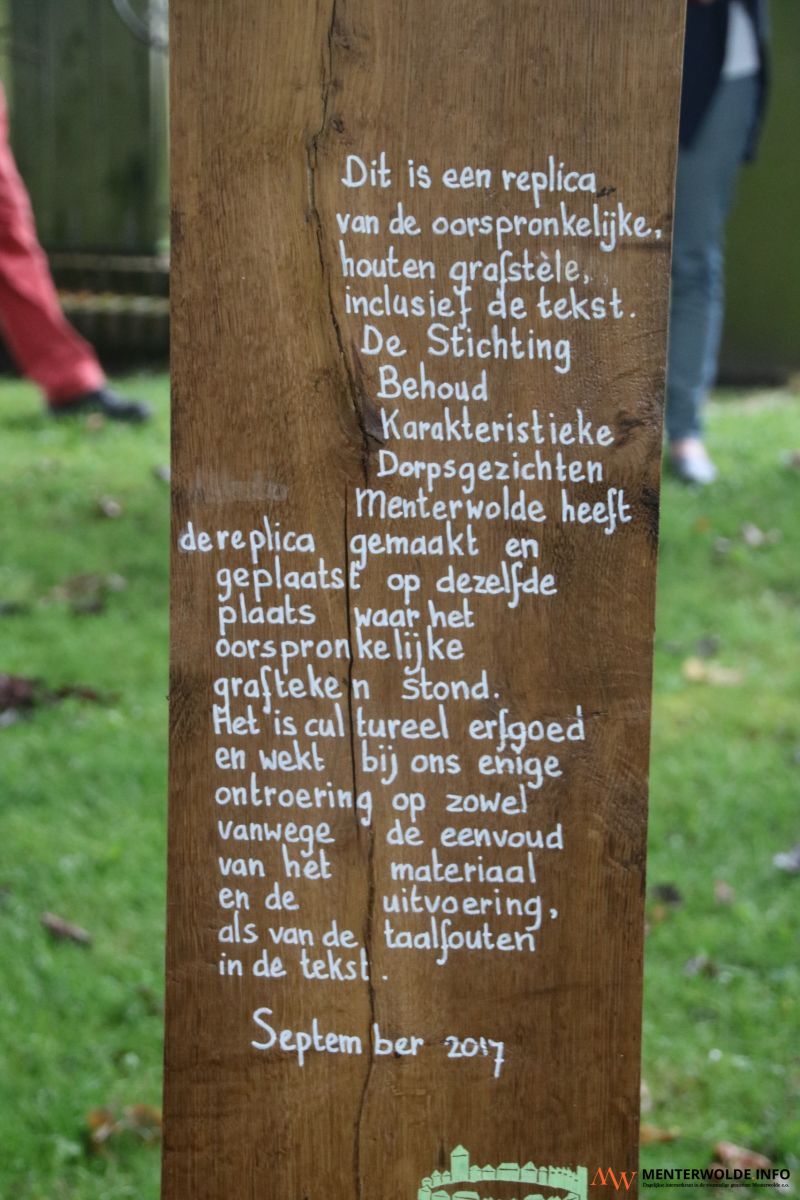 Dit is een replica
van de oorspronkelijke,
houten grafstèle,
inclusief de tekst.
De Stichting
Behoud
Karakteristieke
Dorpsgezichten
Menterwolde heeft
de replica gemaakt en
geplaatst op dezelfde
plaats waar het
oorspronkelijke
grafteken stond.
Het is cultureel erfgoed
en wekt bij ons enige
ontroering op zowel
vanwege de eenvoud
van het materiaal
en de uitvoering,
als van de taalfouten
in de tekst.
September 2017
MW MENTERWOLDE INFO
Dagelijkse internetkrant in de voormalige gemeente Menterwolde e.o.